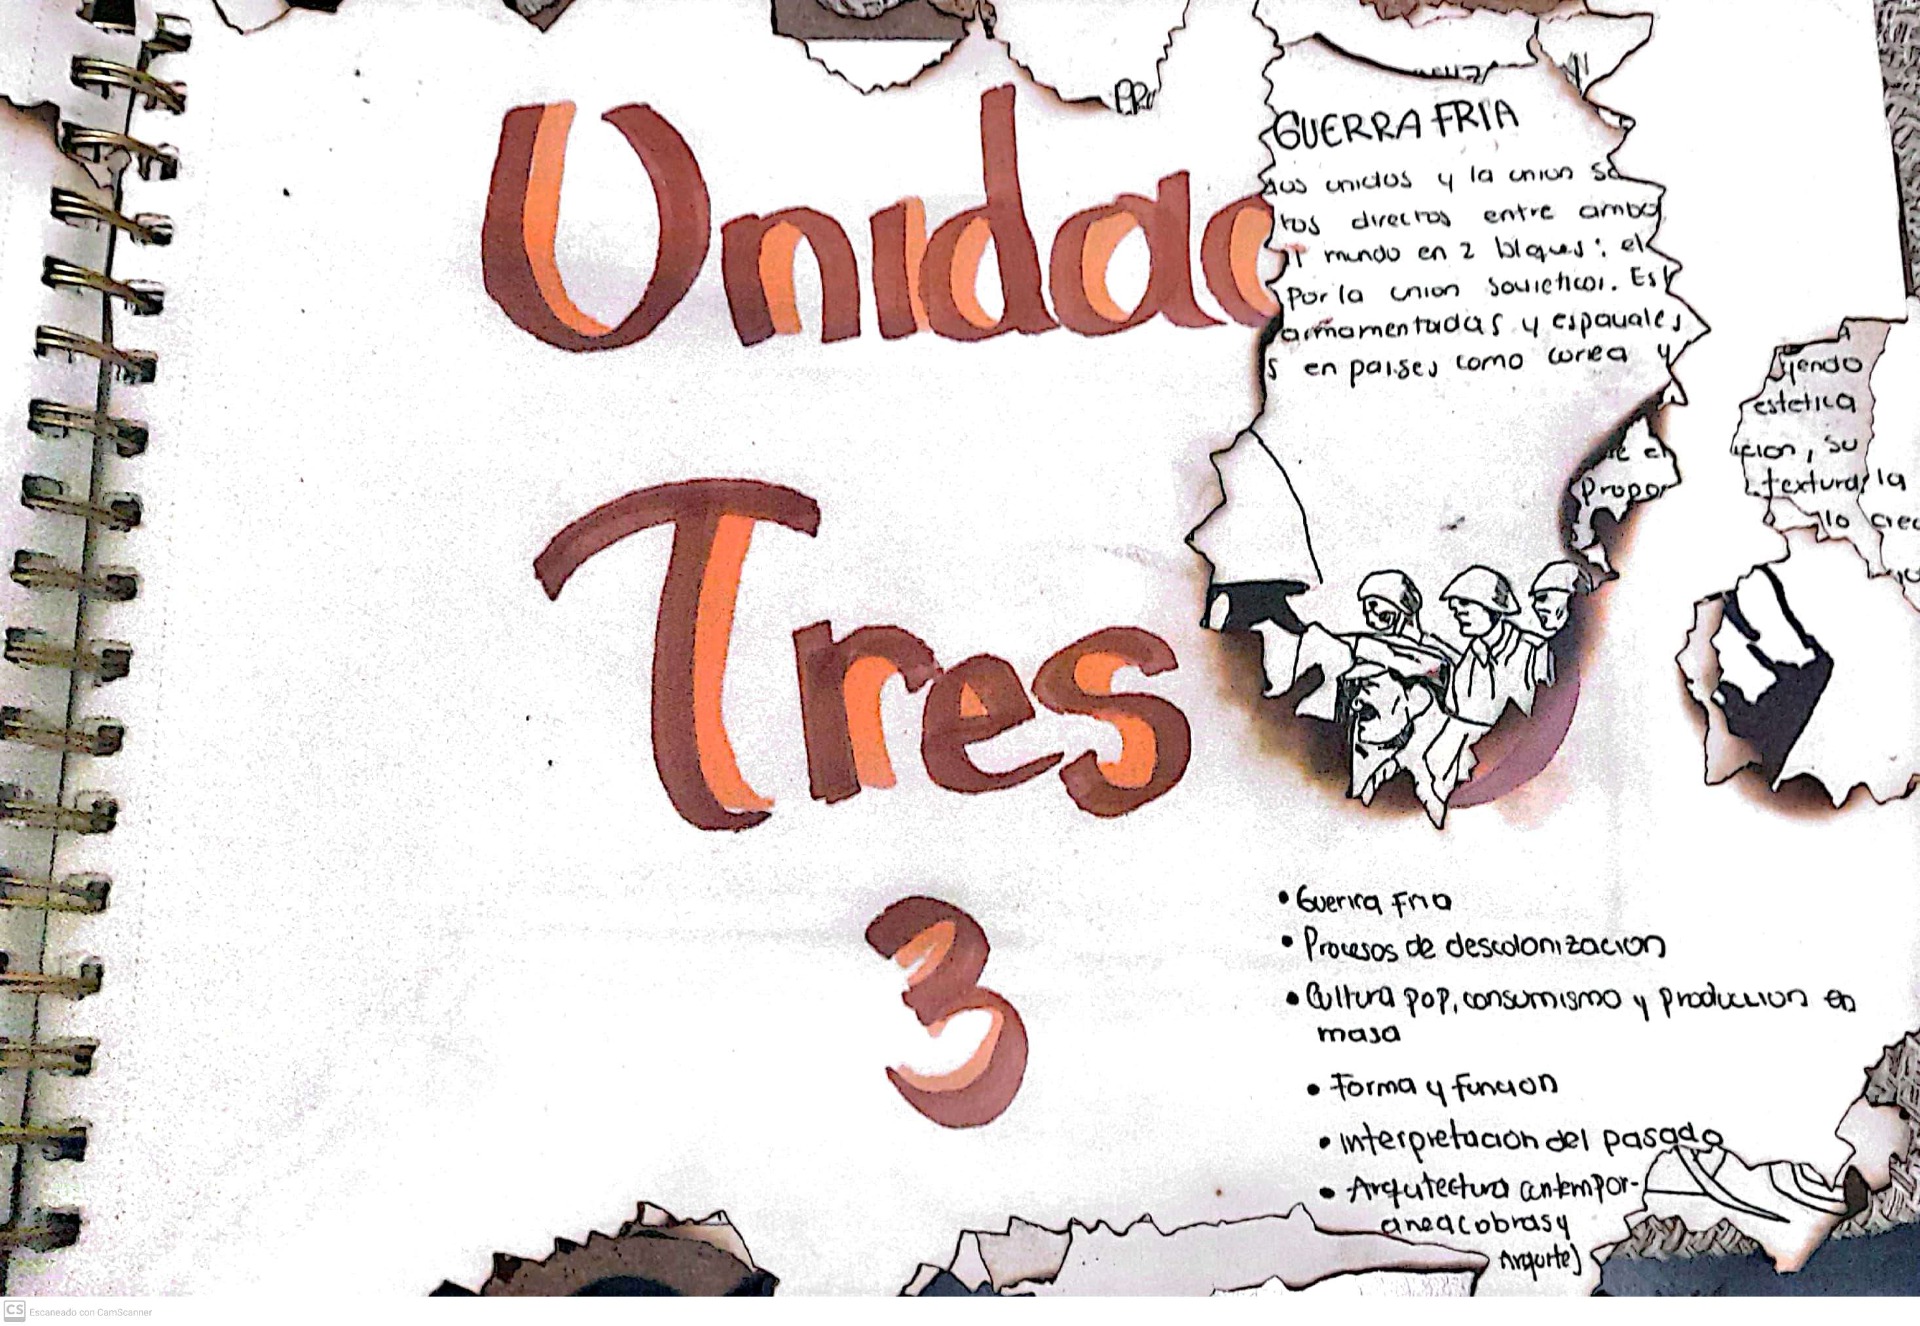 Unidad
Tres
3
GUERRA FRIA
dos unidos y la union so
tos directos entre ambo
mundo en 2 bloques: el
Por la union sovietica. Est
armamentadas y espaciales
s en paises como corea y
yendo
estetica
cion, su
textura, la
lo crea
e el
Propor
• Guerra Fria
• Procesos de descolonizacion
• Cultura pop, consumismo y produccion en
masa
• Forma y funcion
• Interpretacion del pasado
• Arquitectura contempor-
anea (obras y
Arquite)
CS Escaneado con CamScanner